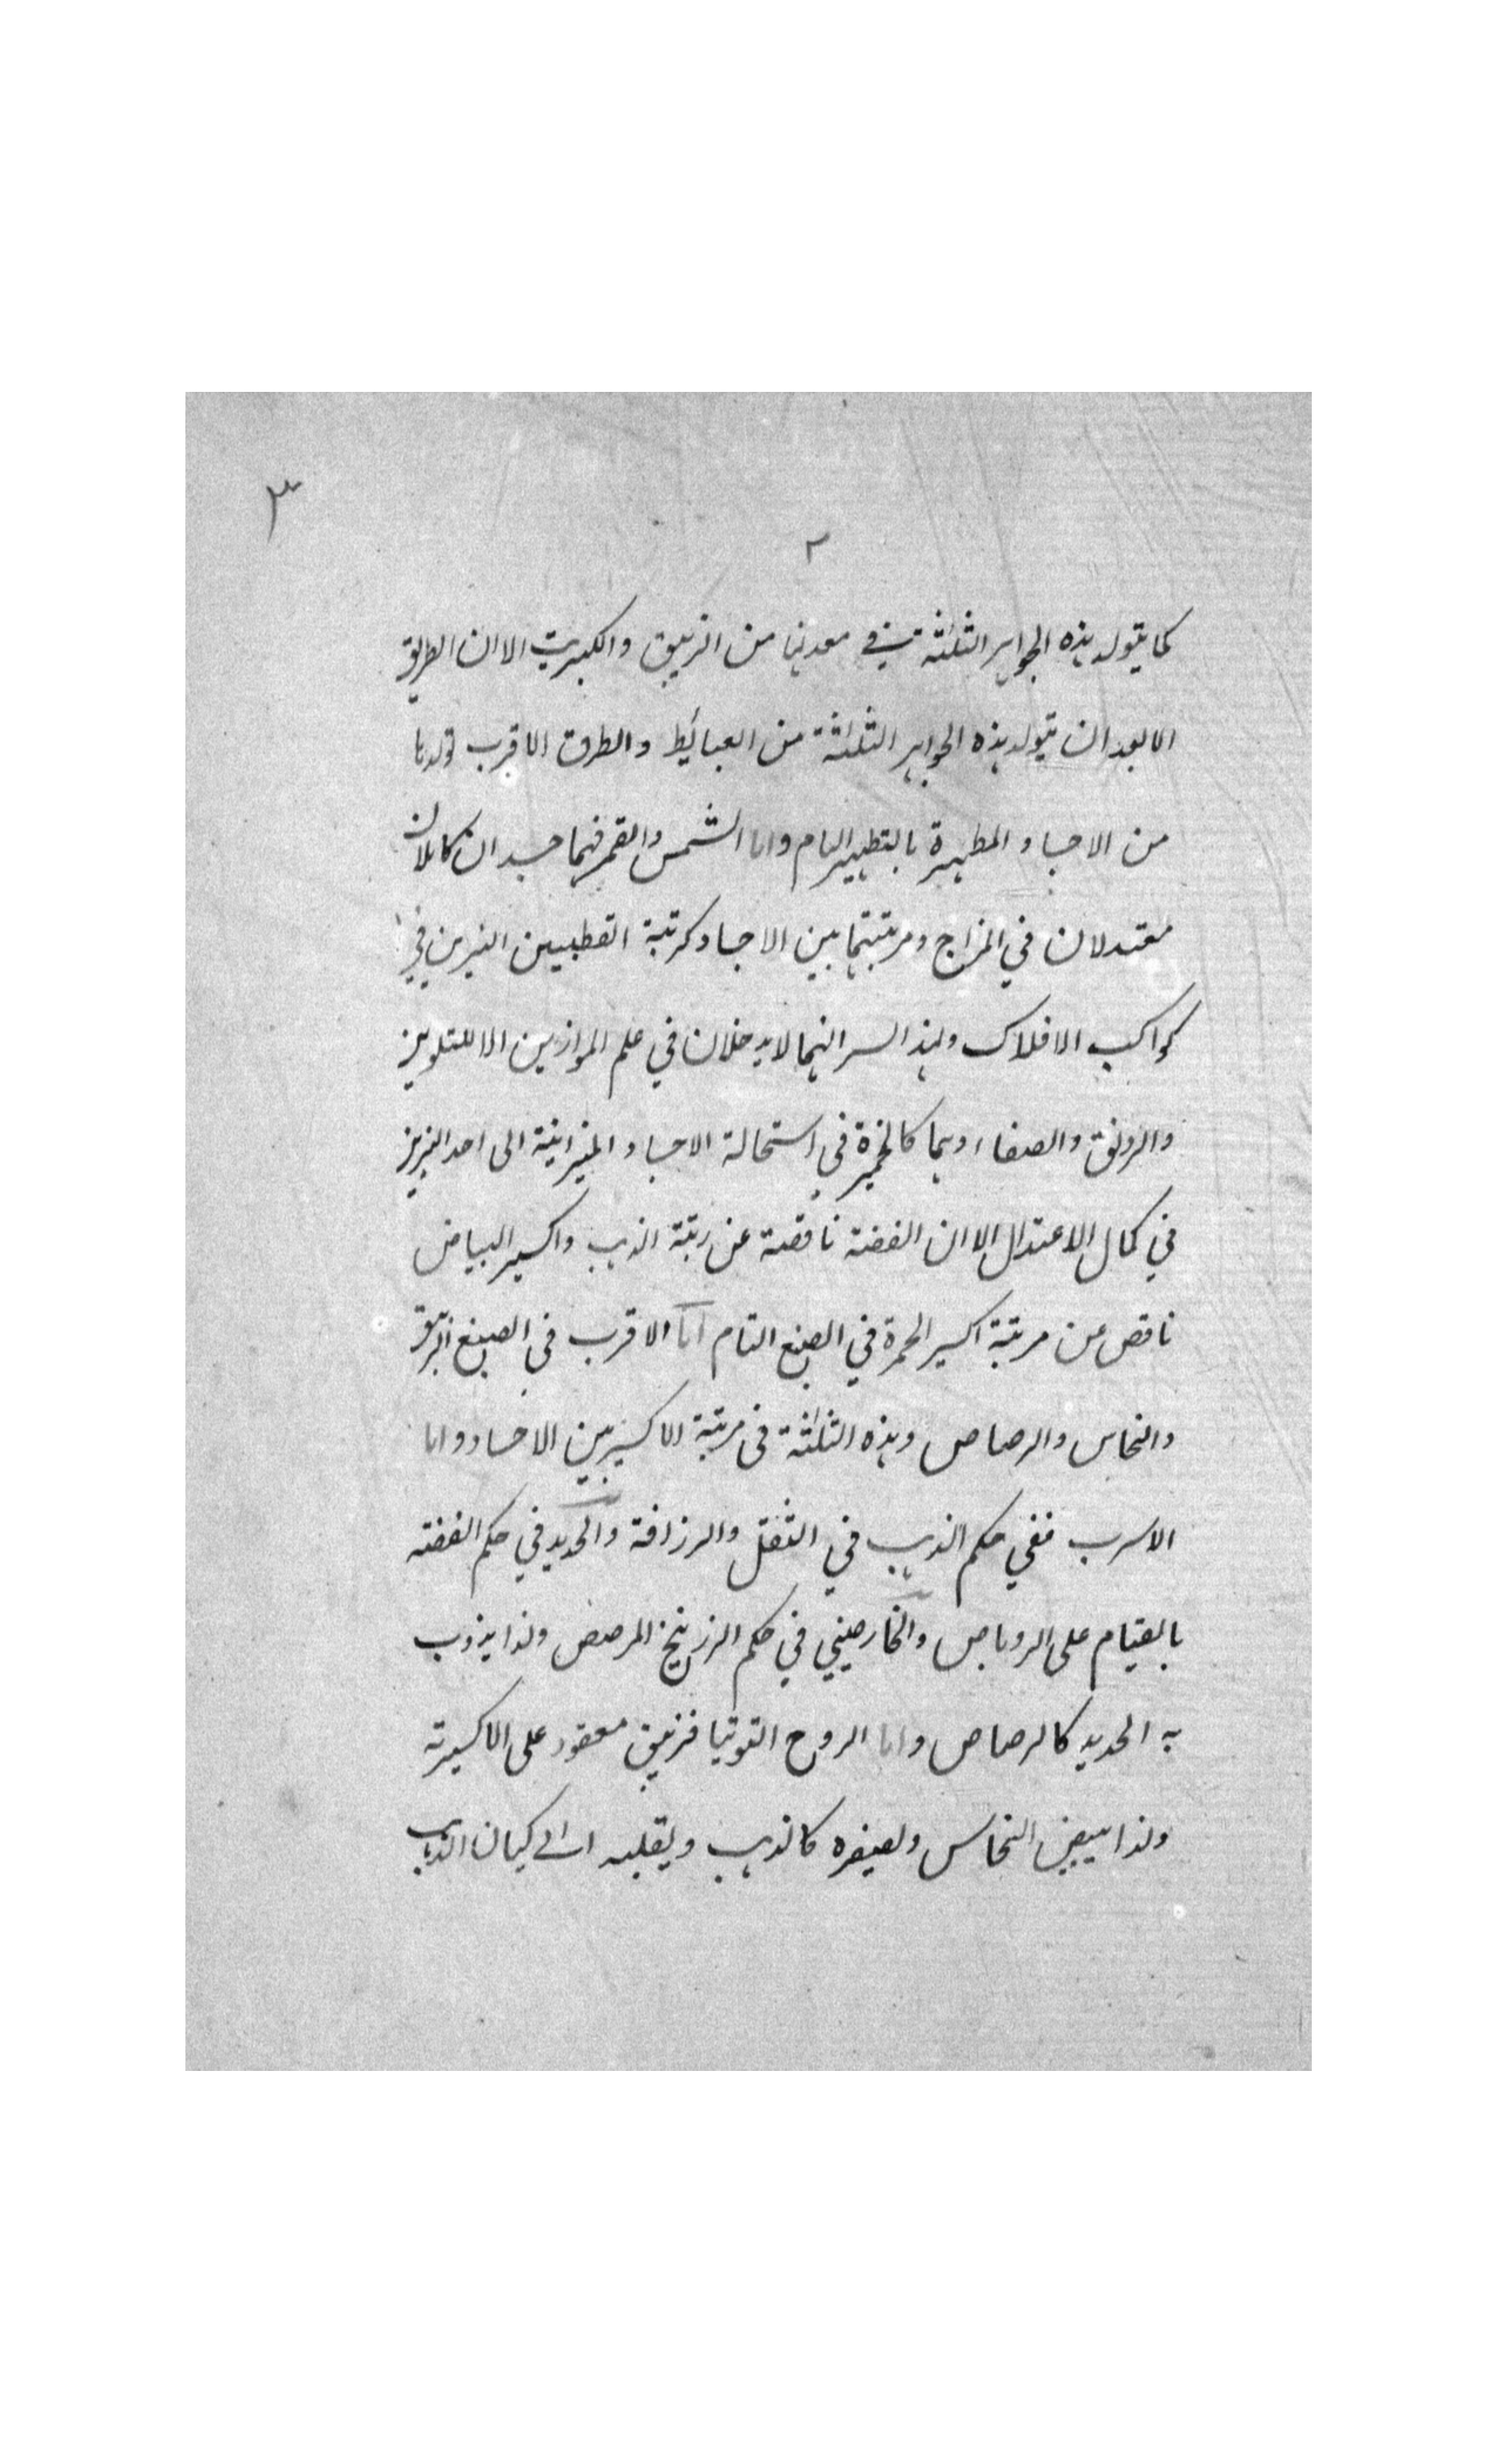 ٣
٢
كما يتولد هذه الجواهر الثلثة في معدنها من الزيبق والكبريت الا ان الطريق
الابعد ان يتولد هذه الجواهر الثلثة من العبائط والطرق الاقرب تولدها
من الاجساد المطهرة بالتطهير التام واما الشمس والقمر فهما جسدان كاملان
معتدلان في المزاج ومرتبتهما بين الاجساد كمرتبة القطبين النيرين في
كواكب الافلاك ولهذا السر انهما لا يدخلان في علم الموازين الا للتلوين
والرونق والصفاء وهما كالخميرة في استحالة الاجساد الميزانية الى احد النيرين
في كمال الاعتدال الا ان الفضة ناقصة عن رتبة الذهب واكسير البياض
ناقص عن مرتبة اكسير الحمرة في الصبغ التام اما الاقرب في الصبغ الزيبق
والنحاس والرصاص وهذه الثلثة في مرتبة الاكسير بين الاجساد واما
الاسرب ففي حكم الذهب في الثقل والرزافة والحديد في حكم الفضة
بالقيام على الروباص والخارصيني في حكم الزرنيخ المرصص ولذا يذوب
به الحديد كالرصاص واما الروح التوتيا فزيبق معقود على الاكسيرية
ولذا يبيض النحاس ويصفره كالذهب ويقلبه الى كيان الذهب